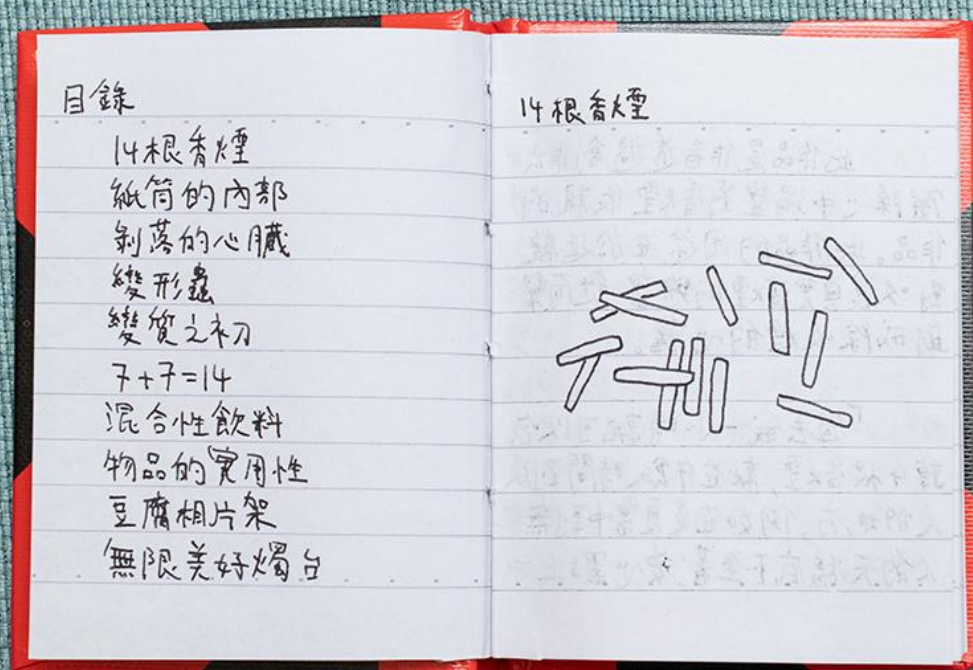 目錄
14根香煙
紙筒的內部
剝落的心臟
變形蟲
變質之初
7+7=14
混合性飲料
物品的實用性
豆腐相片架
無限美好燭台
14根香煙